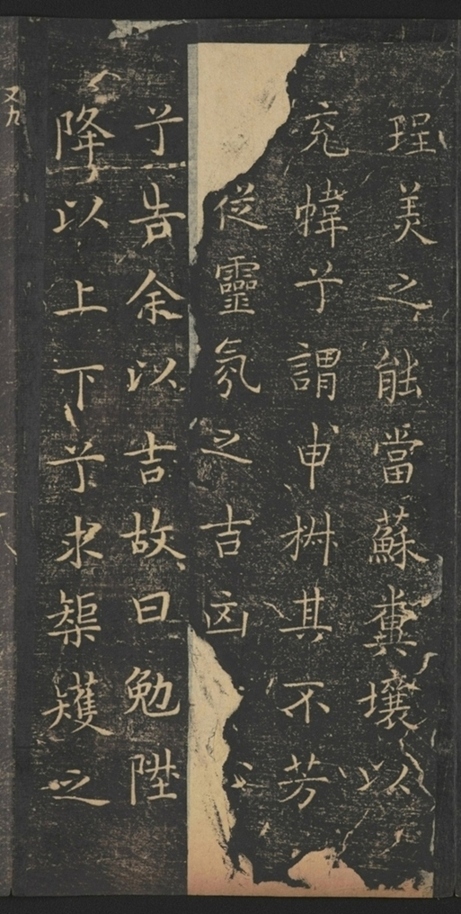 珵美之能當蘇糞壤以
充幃兮謂申椒其不芳
從靈氛之吉凶
兮告余以吉故曰勉陞
降以上下兮求榘矱之
又九